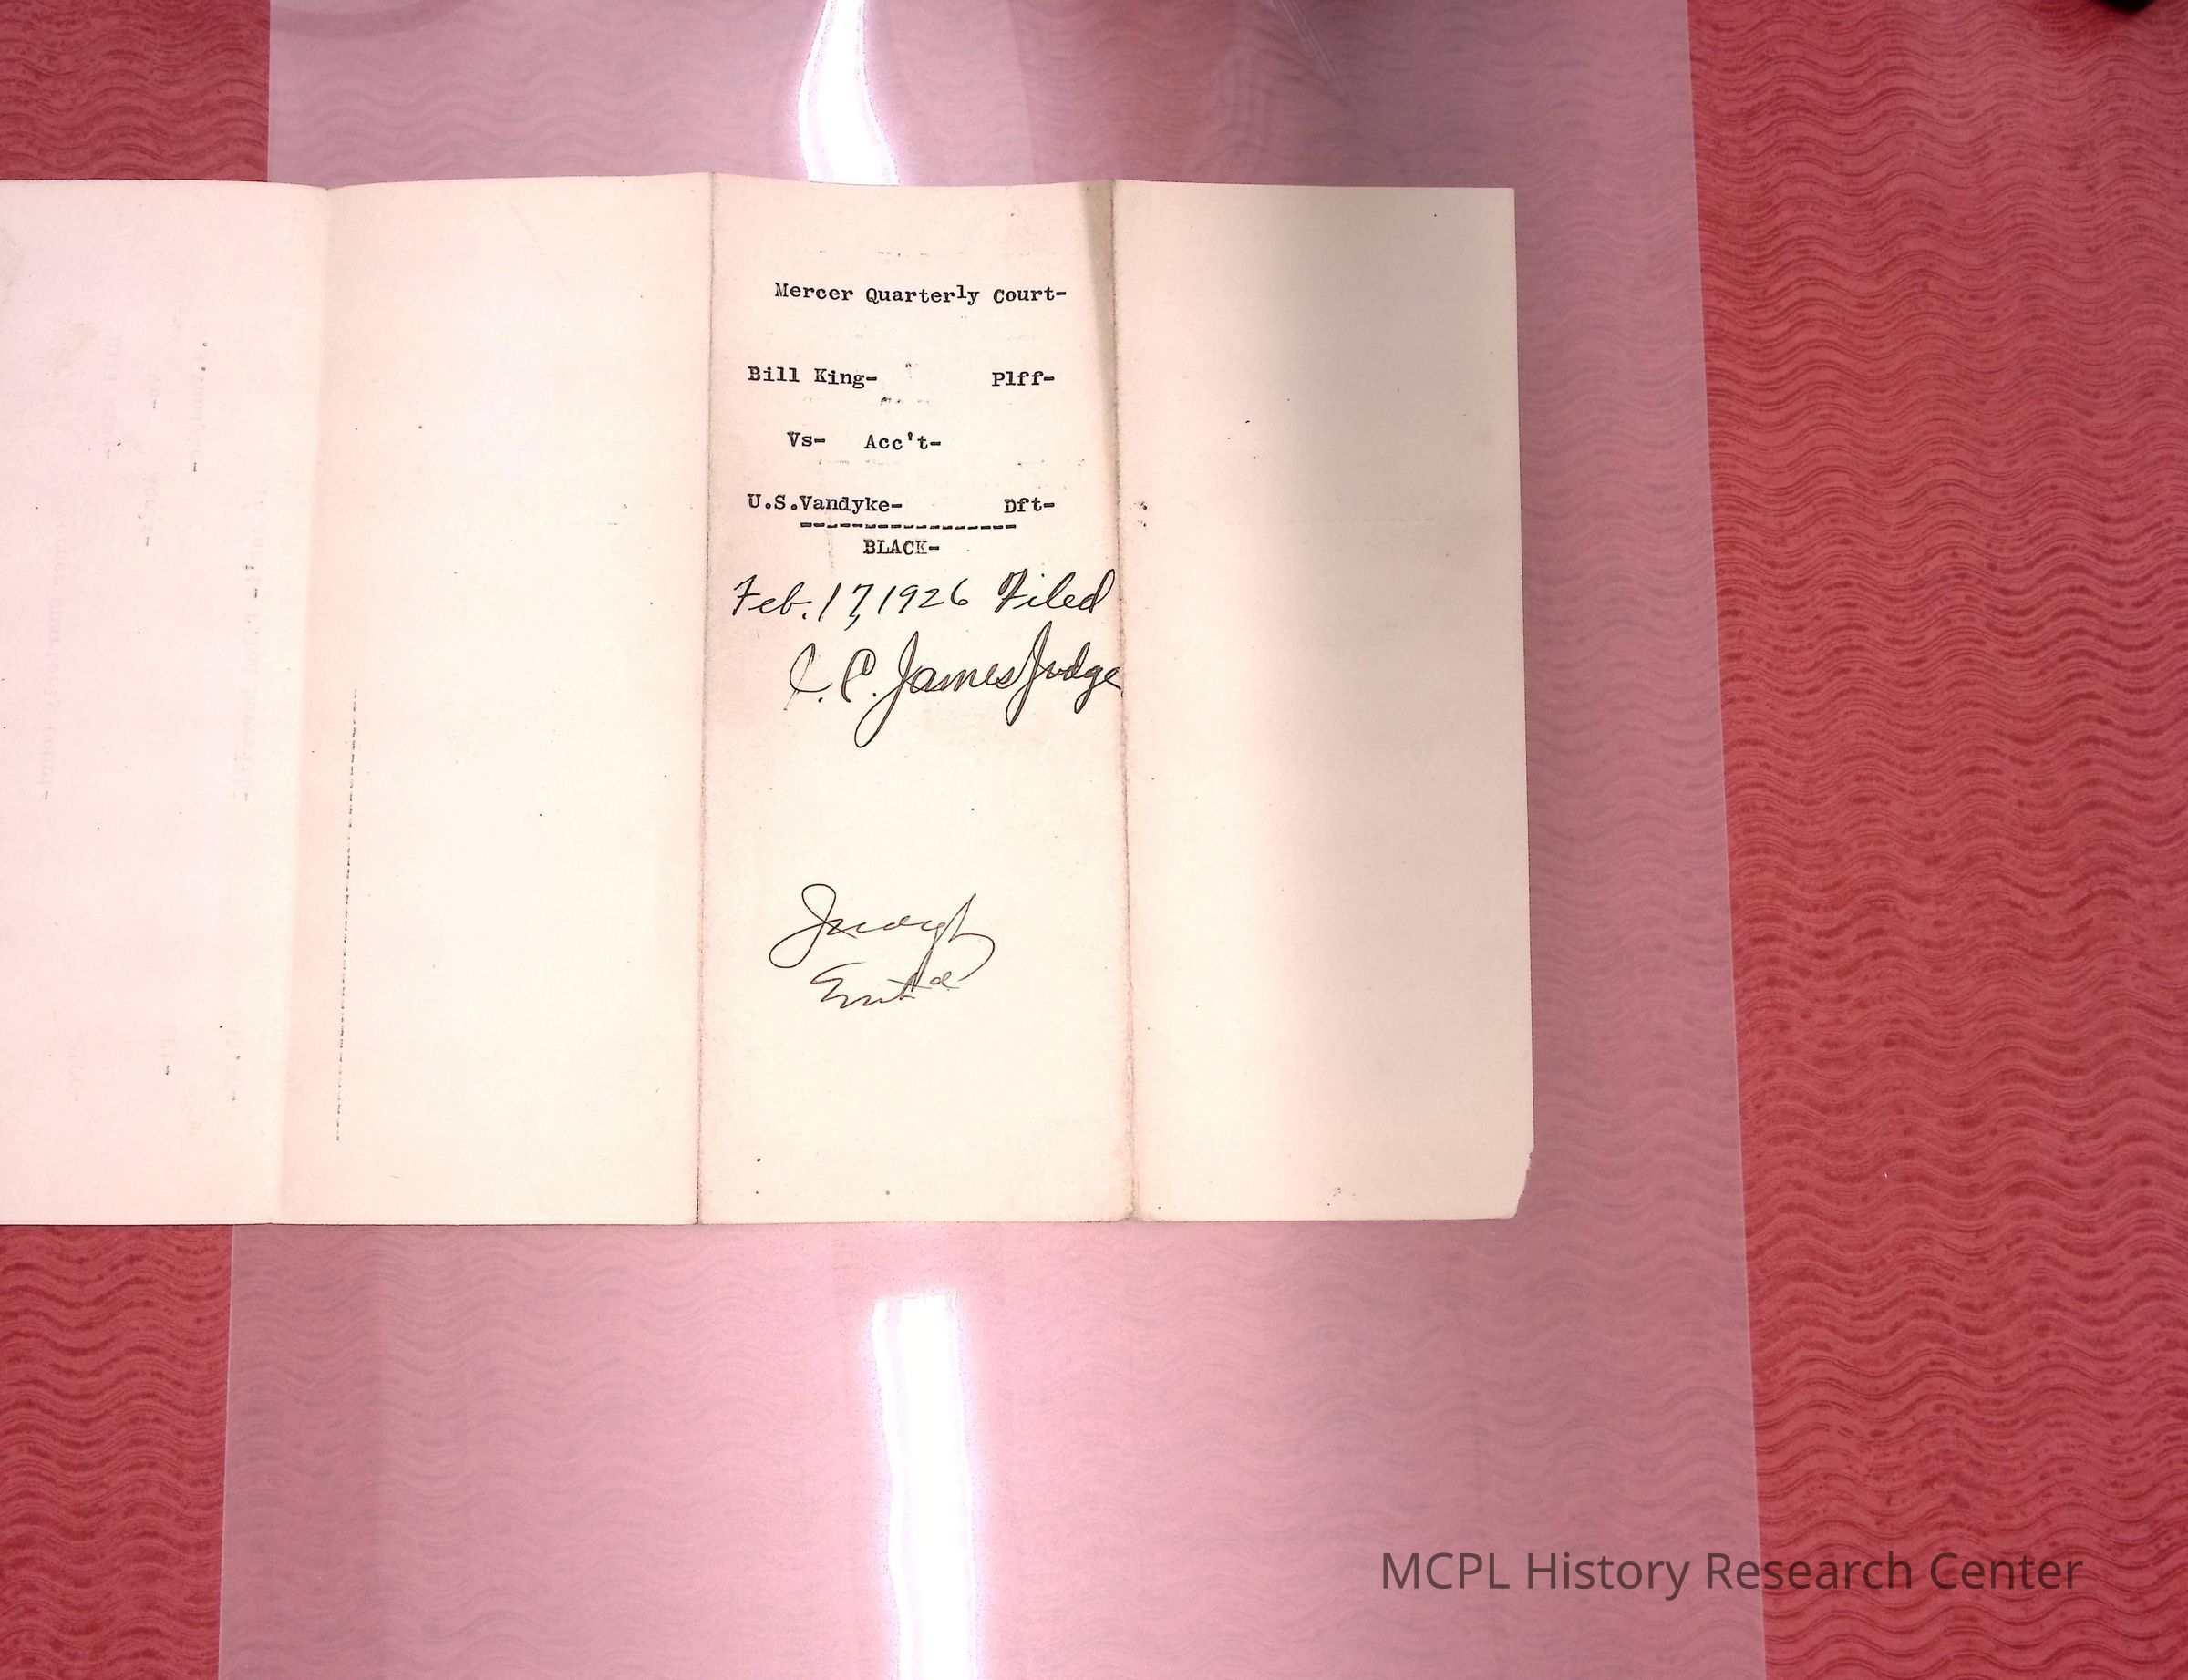 Mercer Quarterly Court-
Bill King- Plff-
Vs- Acc't-
U.S.Vandyke- Dft-
----------------
BLACK-
Feb. 17, 1926 Filed
C. C. James Judge
Judgt
Ent'd
MCPL History Research Center